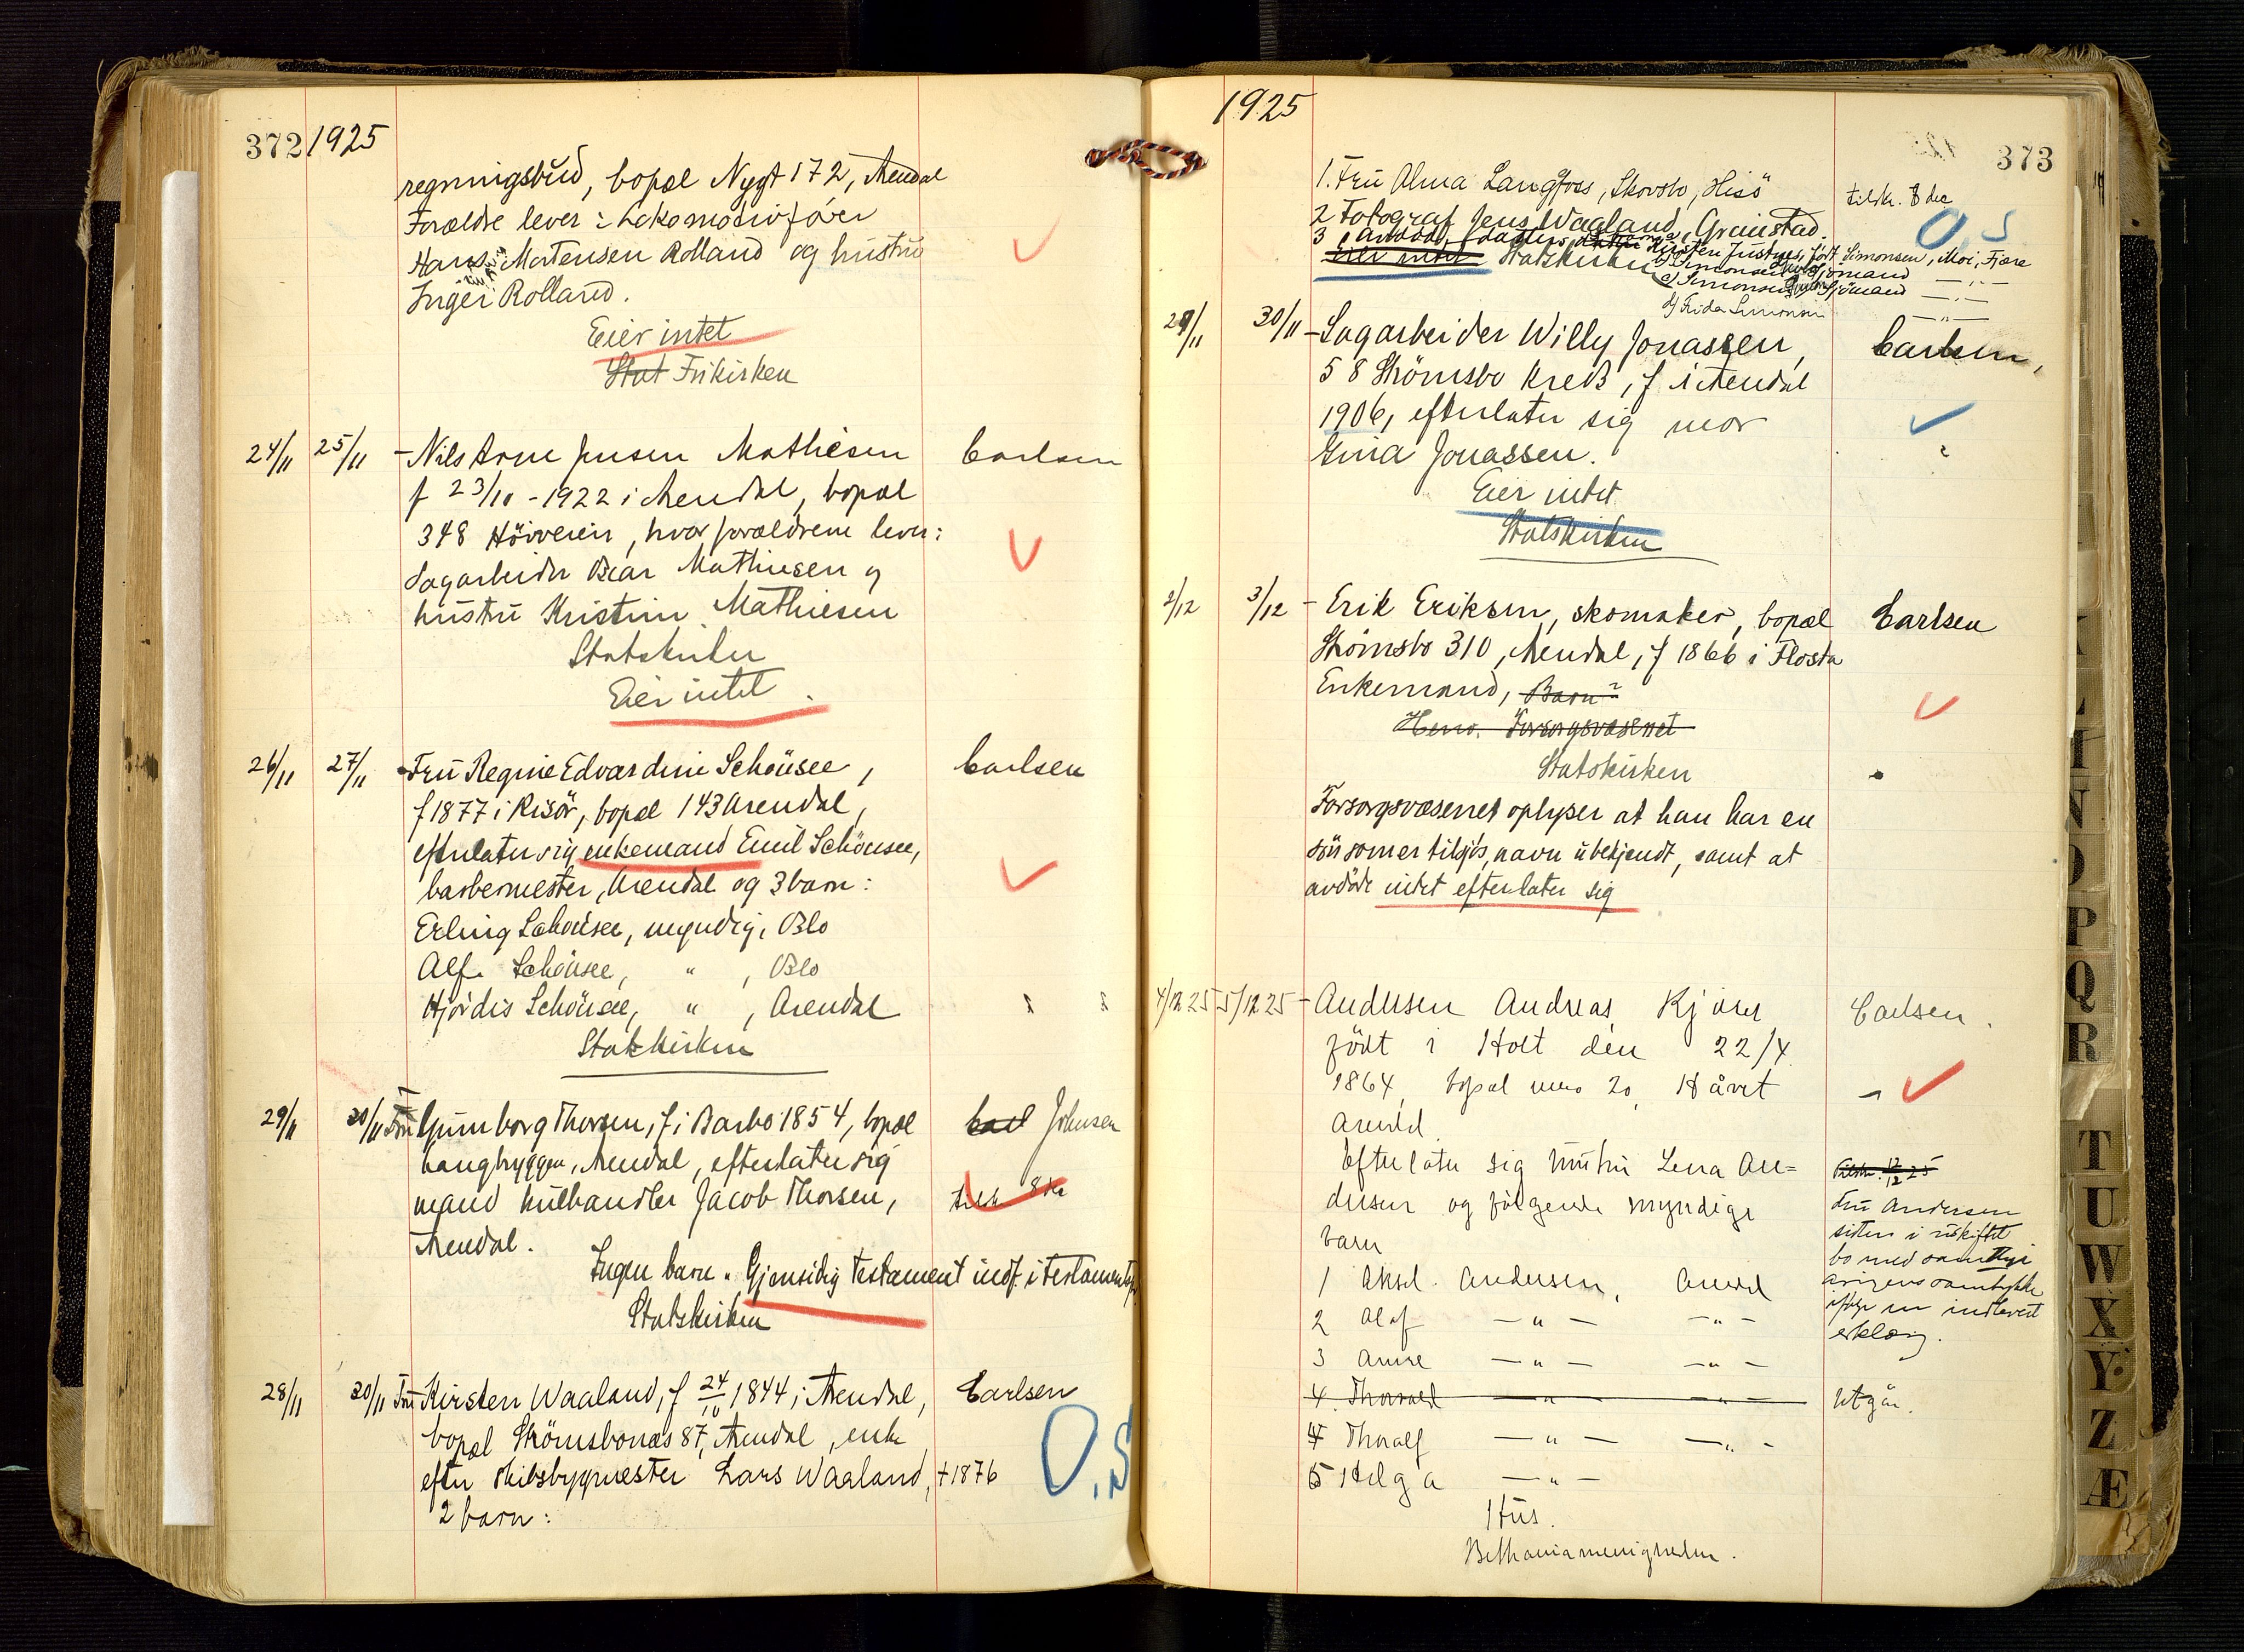 372 1925
regningsbud, bopæl Nygt 172, Arendal
Forældre lever: Lokomotivfører
Hans Mortensen Rolland og hustru
Inger Rolland.
Eier intet
Stat Frikirken
24/11 25/11 - Nils Arne Jensen Mathiesen Carlsen
f 23/10 - 1922 i Arendal, bopæl
348 Höiveien, hvor forældrene lever:
Sagarbeider Mathiesen og
hustru Kristine Mathiesen
Statskirken
Eier intet.
26/11 27/11 - Fru Regine Edvardine Schönsee, Carlsen
f 1877 i Risör, bopæl 143 Arendal,
efterlater sig enkemand Emil Schönsee,
barbermester, Arendal og 3 barn:
Erling Schönsee, myndig, Oslo
Alf Schönsee, " , Oslo
Hjördis Schönsee, " , Arendal
Statskirken
29/11 30/11 Fru Gunborg Thorsen, f i Barbo 1854, bopæl Carl Johnsen
Langbryggen, Arendal, efterlater sig
mand kulhandler Jacob Thorsen, tilsk 8 kr
Arendal.
Ingen barn. Gjensidig testament indf. i testamentsp.
Statskirken
28/11 30/11 Fru Kirsten Waaland, f 24/10 1844 i Arendal, Carlsen
bopæl Strömsbonæs 87, Arendal, enke
efter skibsbygmester Lars Waaland, + 1876 O.S
2 barn:
1925 373
1. Fru Alma Langfoss, Skovsbo, Hisö
2 Fotograf Jens Waaland, Grimstad. O.S
3 Justnes, födt Simonsen, Moi, Fjære
Eier intet Statskirken
b) Simonsen sjömand — " —
c) Simonsen sjömand — " —
d) Frida Simonsen — " —
29/11 30/11 - Sagarbeider Willy Jonassen, Carlsen,
58 Strömsbo kreds, f i Arendal
1906, efterlater sig mor
Gina Jonassen.
Eier intet
Statskirken
2/12 3/12 - Erik Eriksen, skomaker, bopæl Carlsen
Strömsbo 310, Arendal, f 1866 i Flosta
Enkemand, Barn?
Henv. Forsorgsvæsenet
Statskirken
Forsorgsvæsenet oplyser at han har en
sön som er tilsjös, navn ubekjendt, samt at
avdöde intet efterlater sig
4/12 25 5/12 25 - Andersen Andreas Kjörer Carlsen.
födt i Holt den 22/4
1864, bopæl 20, Håvet
Arendal.
Efterlater sig hustru Lena An=
dersen og fölgende myndige
barn
1 Aksel Andersen, Arendal
2 Olaf — " — — " —
3 Anne — " — — " —
4. Thorvald — " — — " — Utgår.
4 Thoralf — " — — " —
5 Helga — " —
Hus.
Bethaniamenigheden.
12/12 25
Fru Andersen
sitter i uskiftet
bo med samtlige
arvingers samtykke
ifölge en indlevert
erklæring.
L
N
O
P
Q
R
T
U
W
X
Y
Z
Æ